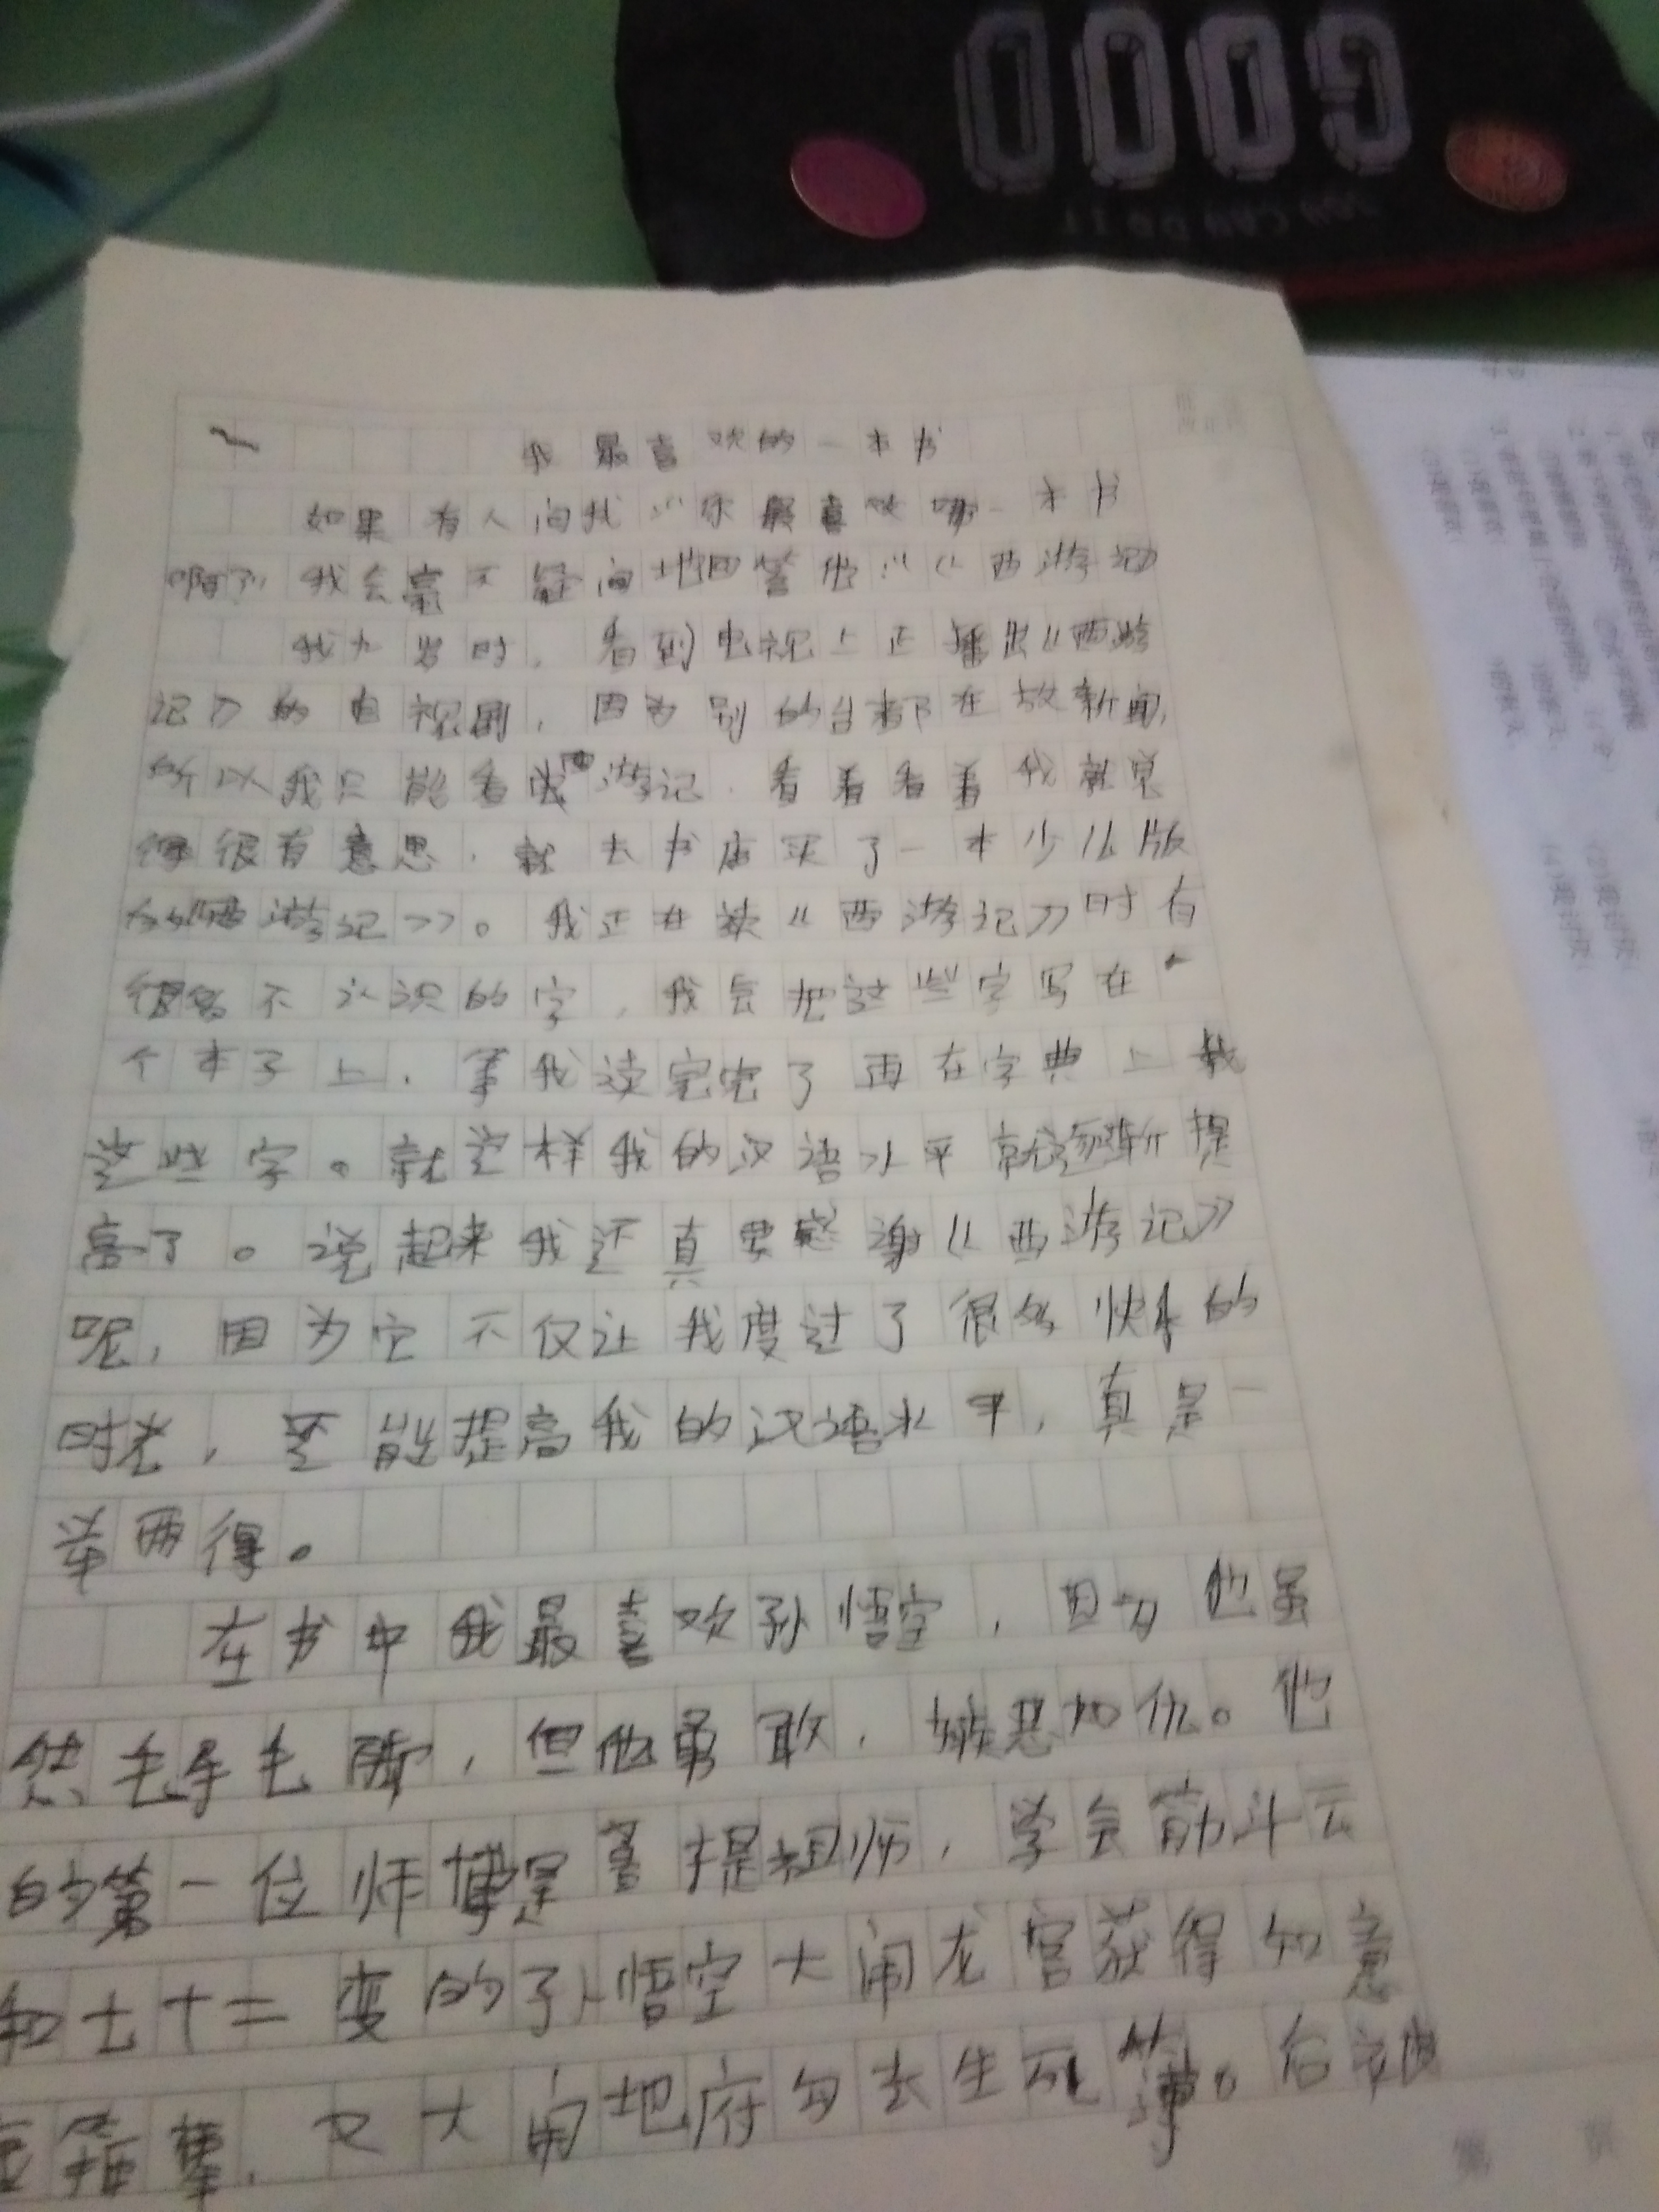 GOOD
YOU CAN DO IT
我最喜欢的一本书
如果有人问我:"你最喜欢哪一本书
啊?"我会毫不疑问地回答他:"《西游记》
我九岁时,看到电视上正播出《西游
记》的电视剧,因为别的台都在放新闻,
所以我只能看西游记,看着看着我就觉
得很有意思,就去书店买了一本少儿版
的《西游记》。我正在读《西游记》时有
很多不认识的字,我会把这些字写在一
个本子上,等我读完完了再在字典上找
这些字。就这样我的汉语水平就逐渐提
高了。说起来我还真要感谢《西游记》
呢,因为它不仅让我度过了很多快乐的
时光,还能提高我的汉语水平,真是一
举两得。
在书中我最喜欢孙悟空,因为他虽
然毛手毛脚,但他勇敢,嫉恶如仇。他
的第一位师傅是菩提祖师,学会筋斗云
和七十二变的孙悟空大闹龙宫获得如意
金箍棒,又大闹地府勾去生死簿。后被
第 页